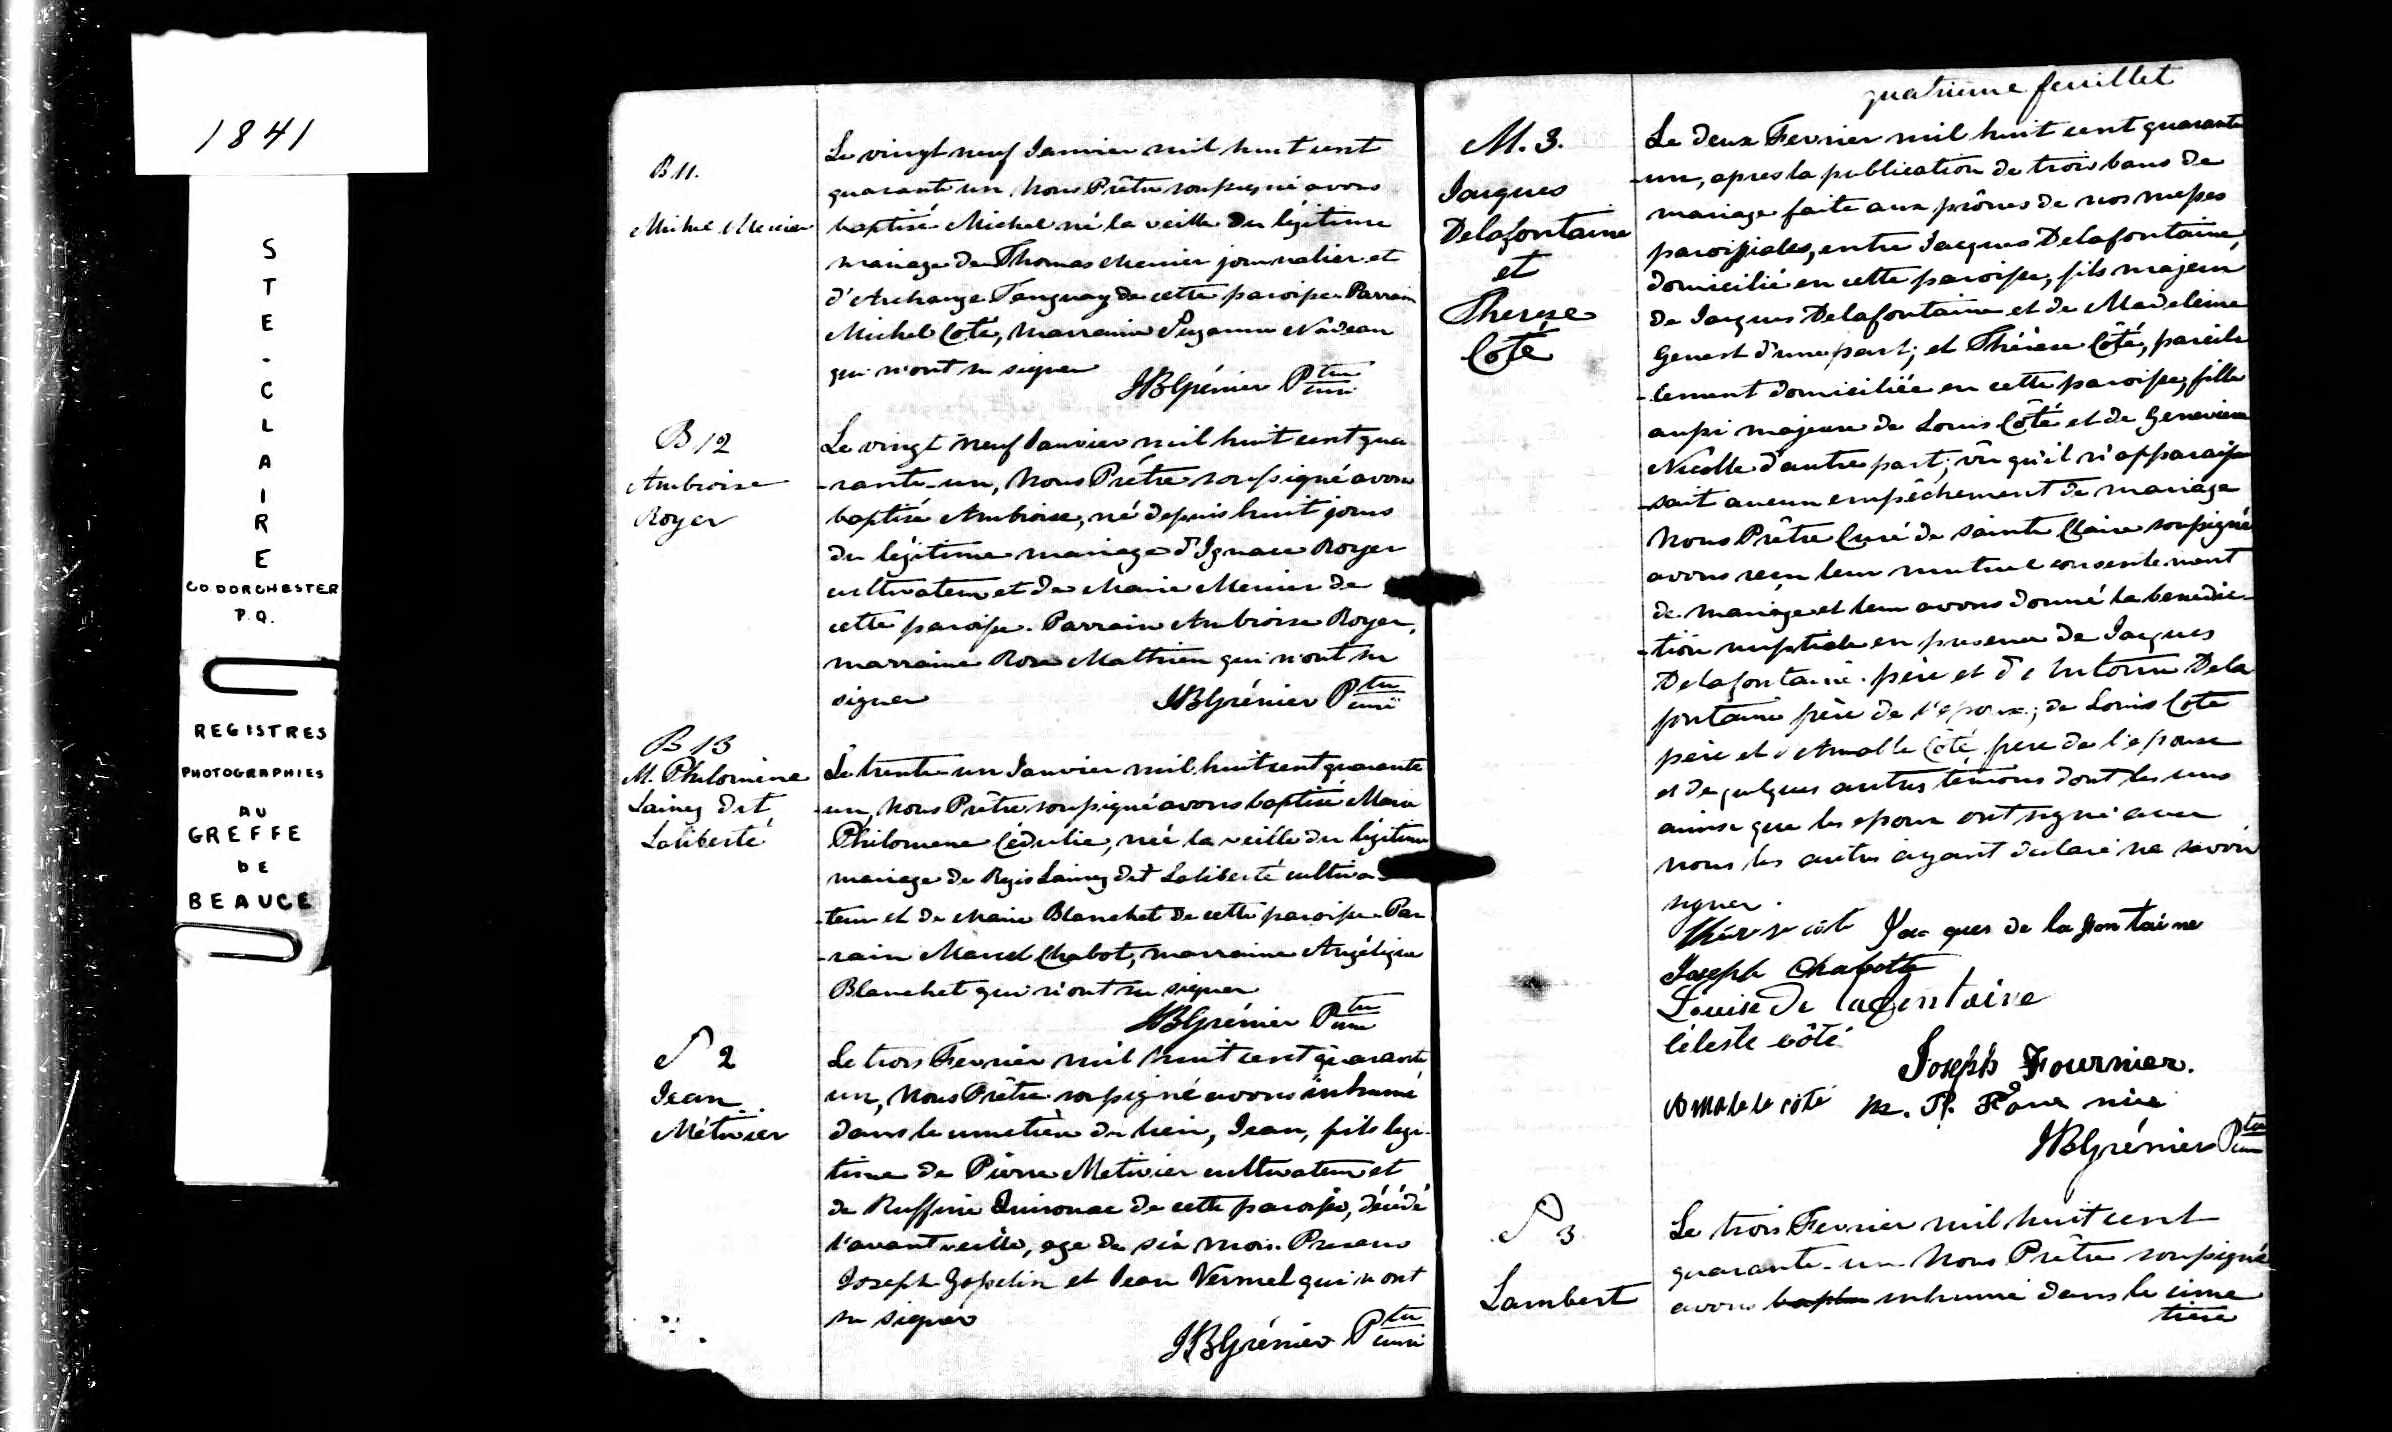 1841
STE-CLAIRE
CO. DORCHESTER
P.Q.
REGISTRES
PHOTOGRAPHIES
AU
GREFFE
DE
BEAUCE
B 11.
Michel Mercier
Le vingt neuf Janvier mil huit cent
quarante un, Nous Prêtre soussigné avons
baptisé Michel né la veille du légitime
mariage de Thomas Mercier journalier et
d'Archange Tanguay de cette paroisse. Parrain
Michel Coté, Marraine Suzanne Nadeau
qui n'ont su signer
JBGrénier Ptre curé
B 12
Ambroise
Royer
Le vingt neuf Janvier mil huit cent qua
-rante-un, Nous Prêtre soussigné avons
baptisé Ambroise, né depuis huit jours
du légitime mariage d'Ignace Royer
cultivateur et de Marie Mercier de
cette paroisse. Parrain Ambroise Royer,
marraine Rose Mathieu qui n'ont su
signer
JBGrénier Ptre curé
B 13
M. Philomène
Lainez dit
Laliberté
Le trente un Janvier mil huit cent quarante
-un, Nous Prêtre soussigné avons baptisé Marie
Philomene Cédulie, née la veille du légitime
mariage de Regis Lainez dit Laliberté cultiva
-teur et de Marie Blanchet de cette paroisse. Par
-rain Marcel Chabot, marraine Angélique
Blanchet qui n'ont su signer
JBGrénier Ptre curé
S 2
Jean
Métivier
Le trois Fevrier mil huit cent quarante
un, Nous Prêtre soussigné avons inhumé
dans le cimetière du lieu, Jean, fils légi-
time de Pierre Metivier cultivateur et
de Ruffine de cette paroisse, décédé
l'avant veille, age de six mois. Presens
Joseph Gosselin et Jean Vermel qui n'ont
su signer
JBGrénier Ptre curé
quatrieme feuillet
M. 3.
Jacques
Delafontaine
et
Therese
Coté
Le deux Fevrier mil huit cent quarante
-un, apres la publication de trois bans de
mariage faite aux prônes de nos messes
paroissiales, entre Jacques Delafontaine,
domicilié en cette paroisse, fils majeur
de Jacques Delafontaine et de Madeleine
Genest d'une part; et Thérèse Côté, pareil
-lement domiciliée en cette paroisse, fille
aussi majeure de Louis Côté et de Genevieve
Nicolle d'autre part; vu qu'il n'apparais
-sait aucun empêchement de mariage
Nous Prêtre Curé de Sainte Claire soussigné
avons reçu leur mutuel consentement
de mariage et leur avons donné la benedic-
-tion nuptiale en presence de Jacques
Delafontaine père et d'Antoine Dela
fontaine frère de l'epoux; de Louis Cote
père et d'Amable Côté frere de l'epouse
et de quelques autres témoins dont les uns
ainsi que les epoux ont signé avec
nous les autres ayant declaré ne savoir
signer.
Thérese côté Jacques de la fontaine
Joseph Chabotte
Louise De lafontaine
Céleste côté
Joseph Fournier.
Amable côté M. P. Fournié
JBGrénier Ptre curé
S 3
Lambert
Le trois Fevrier mil huit cent
quarante-un Nous Prêtre soussigné
avons inhumé dans le cime
tiere